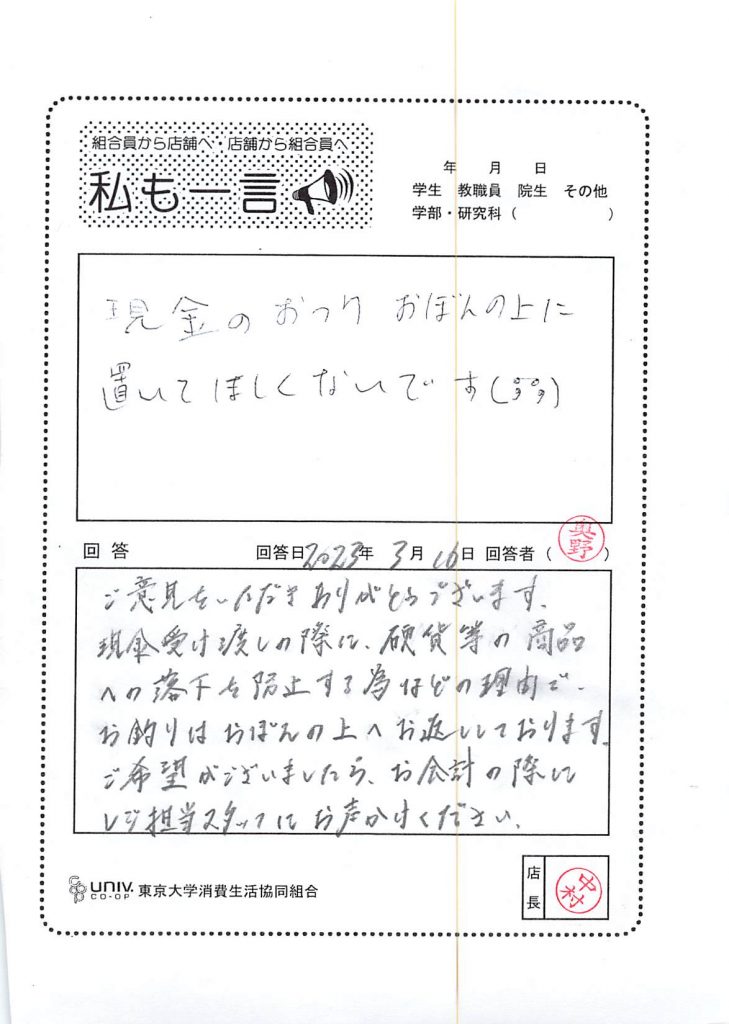 組合員から店舗へ・店舗から組合員へ
私も一言
年 月 日
学生 教職員 院生 その他
学部・研究科( )
現金のおつり おぼんの上に
置いてほしくないです
回答 回答日2023年 3月16日 回答者( 奥野 )
ご意見をいただきありがとうございます。
現金受け渡しの際に、硬貨等の商品
への落下を防止する為などの理由で、
お釣りはおぼんの上へお返ししております。
ご希望がございましたら、お会計の際に
レジ担当スタッフにお声かけください。
UNIV. CO-OP 東京大学消費生活協同組合
店長 中村